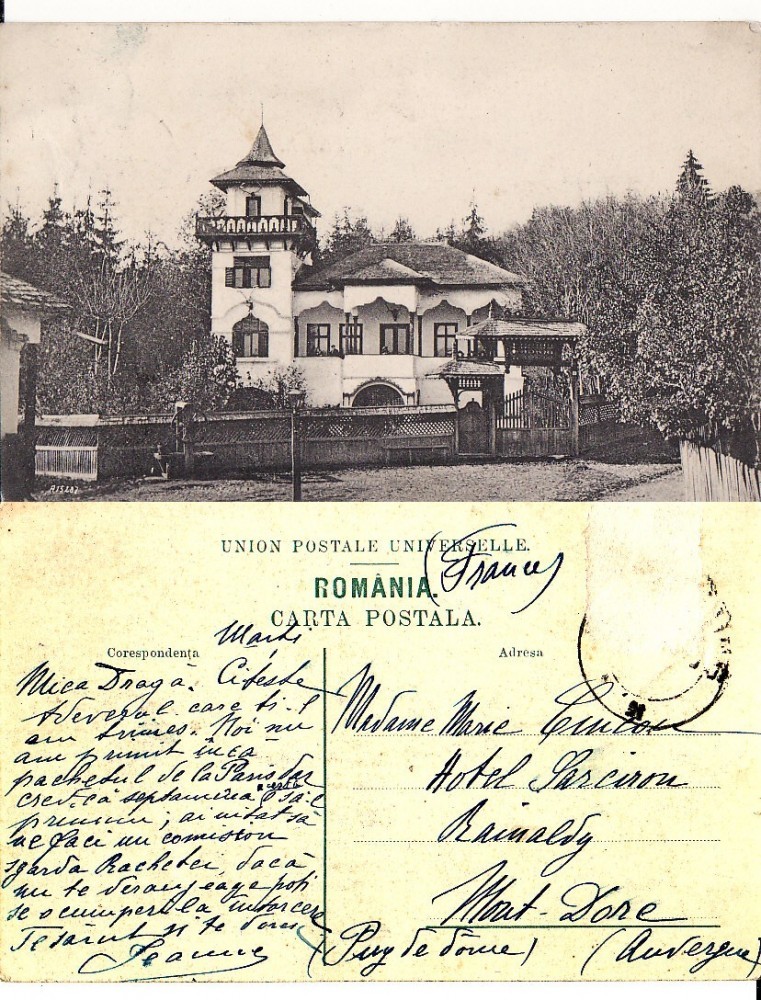 A15287
UNION POSTALE UNIVERSELLE.
(France)
ROMÂNIA.
CARTA POSTALA.
Marti
Corespondenţa
Adresa
Mica Dragă. Citeste
adeverul care ti-l
am trimes. Noi nu
am primit încă
pachetul de la Paris dar
cred că septamâna să-l
primim; ai uitat să
ne faci un comision
sgarda Rachetei, dacă
nu te deranjeaga poti
se o cumperi la intorcere
Te sărut si te doresc
Jeanne
Madame Marie
Hotel Sarciron
Rainaldy
Mont-Dore
(Puy de dôme) (Auvergne)